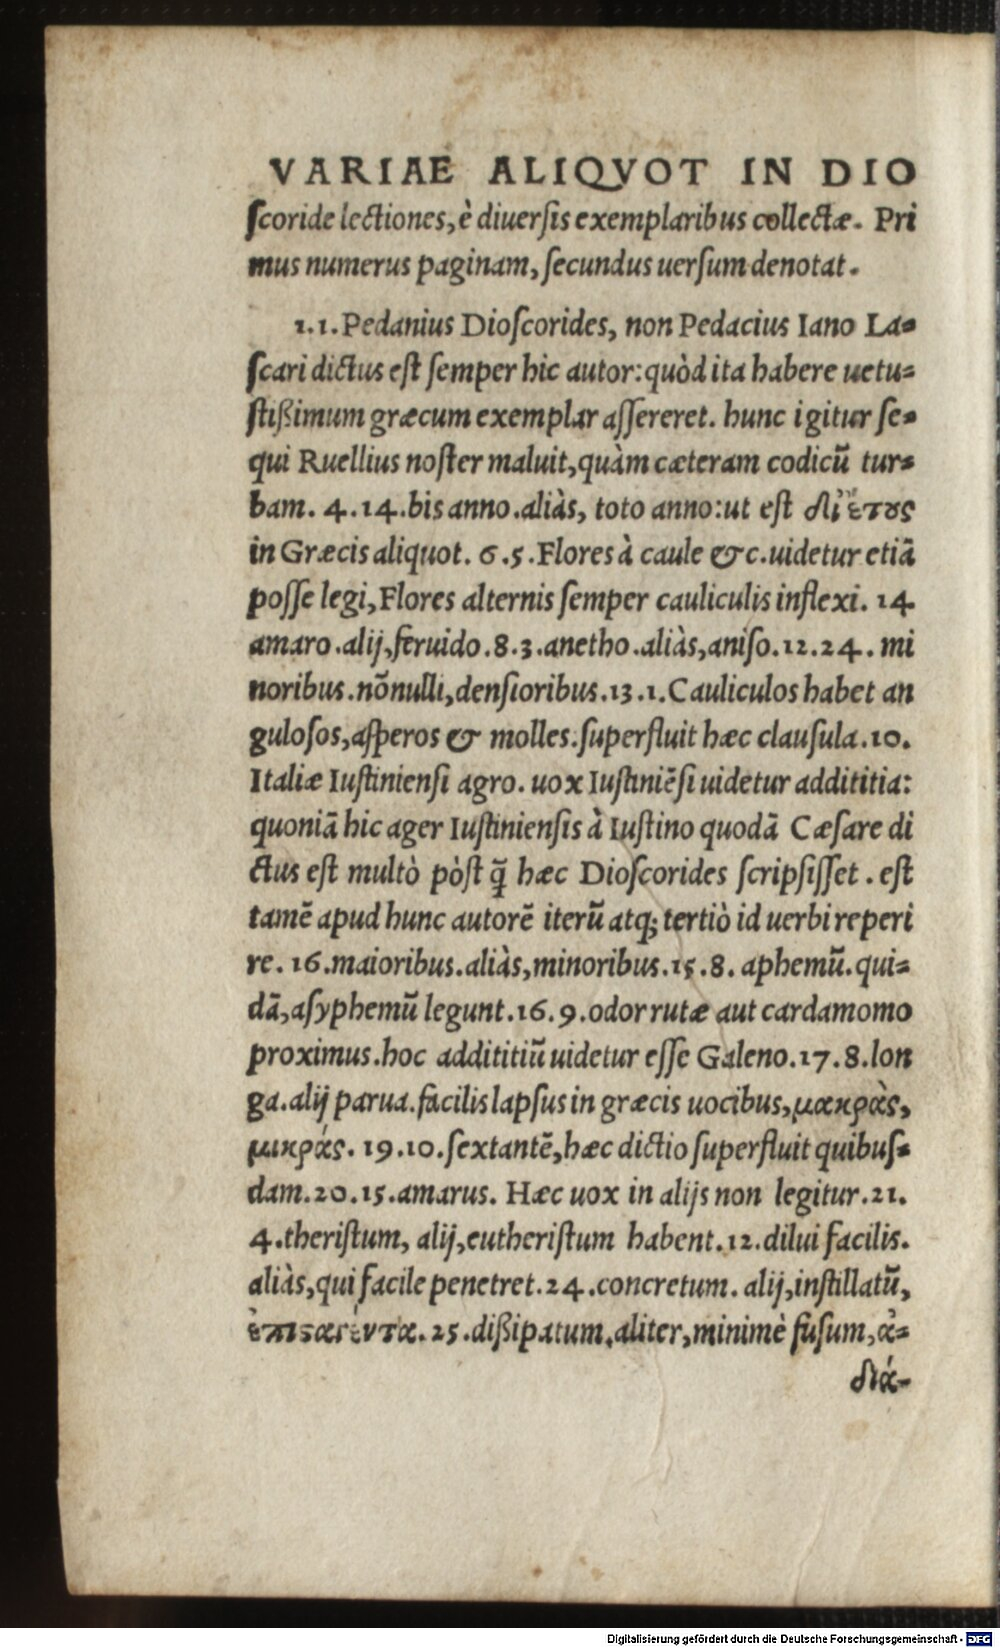 VARIAE ALIQVOT IN DIO
ſcoride lectiones, è diuerſis exemplaribus collectæ. Pri
mus numerus paginam, ſecundus uerſum denotat.
1.1. Pedanius Dioſcorides, non Pedacius Iano La-
ſcari dictus eſt ſemper hic autor: quòd ita habere uetu-
ſtißimum græcum exemplar aſſereret. hunc igitur ſe-
qui Ruellius noſter maluit, quàm cæteram codicū tur-
bam. 4.14. bis anno. aliàs, toto anno: ut eſt δι' ἔτους
in Græcis aliquot. 6.5. Flores à caule &c. uidetur etiā
poſſe legi, Flores alternis ſemper cauliculis inflexi. 14
amaro. alij, feruido. 8.3. anetho. aliàs, aniſo. 12.24. mi
noribus. nōnulli, denſioribus. 13.1. Cauliculos habet an
guloſos, aſperos & molles. ſuperfluit hæc clauſula. 10.
Italiæ Iuſtinienſi agro. uox Iuſtiniēſi uidetur addititia:
quoniā hic ager Iuſtinienſis à Iuſtino quodā Cæſare di
ctus eſt multò pòſt q̃ hæc Dioſcorides ſcripſiſſet. eſt
tamē apud hunc autorē iterū atq; tertiò id uerbi reperi
re. 16. maioribus. aliàs, minoribus. 15.8. aphemū. qui-
dā, aſyphemū legunt. 16.9. odor rutæ aut cardamomo
proximus. hoc addititiū uidetur eſſe Galeno. 17.8. lon
ga. alij parua. facilis lapſus in græcis uocibus, μακρὰς,
μικράς. 19.10. ſextantē, hæc dictio ſuperfluit quibuſ-
dam. 20.15. amarus. Hæc uox in alijs non legitur. 21.
4. theriſtum, alij, eutheriſtum habent. 12. dilui facilis.
aliàs, qui facile penetret. 24. concretum. alij, inſtillatū,
ἐπισαγέντα. 25. dißipatum, aliter, minimè fuſum, ἀ-
διά-
Digitalisierung gefördert durch die Deutsche Forschungsgemeinschaft - DFG